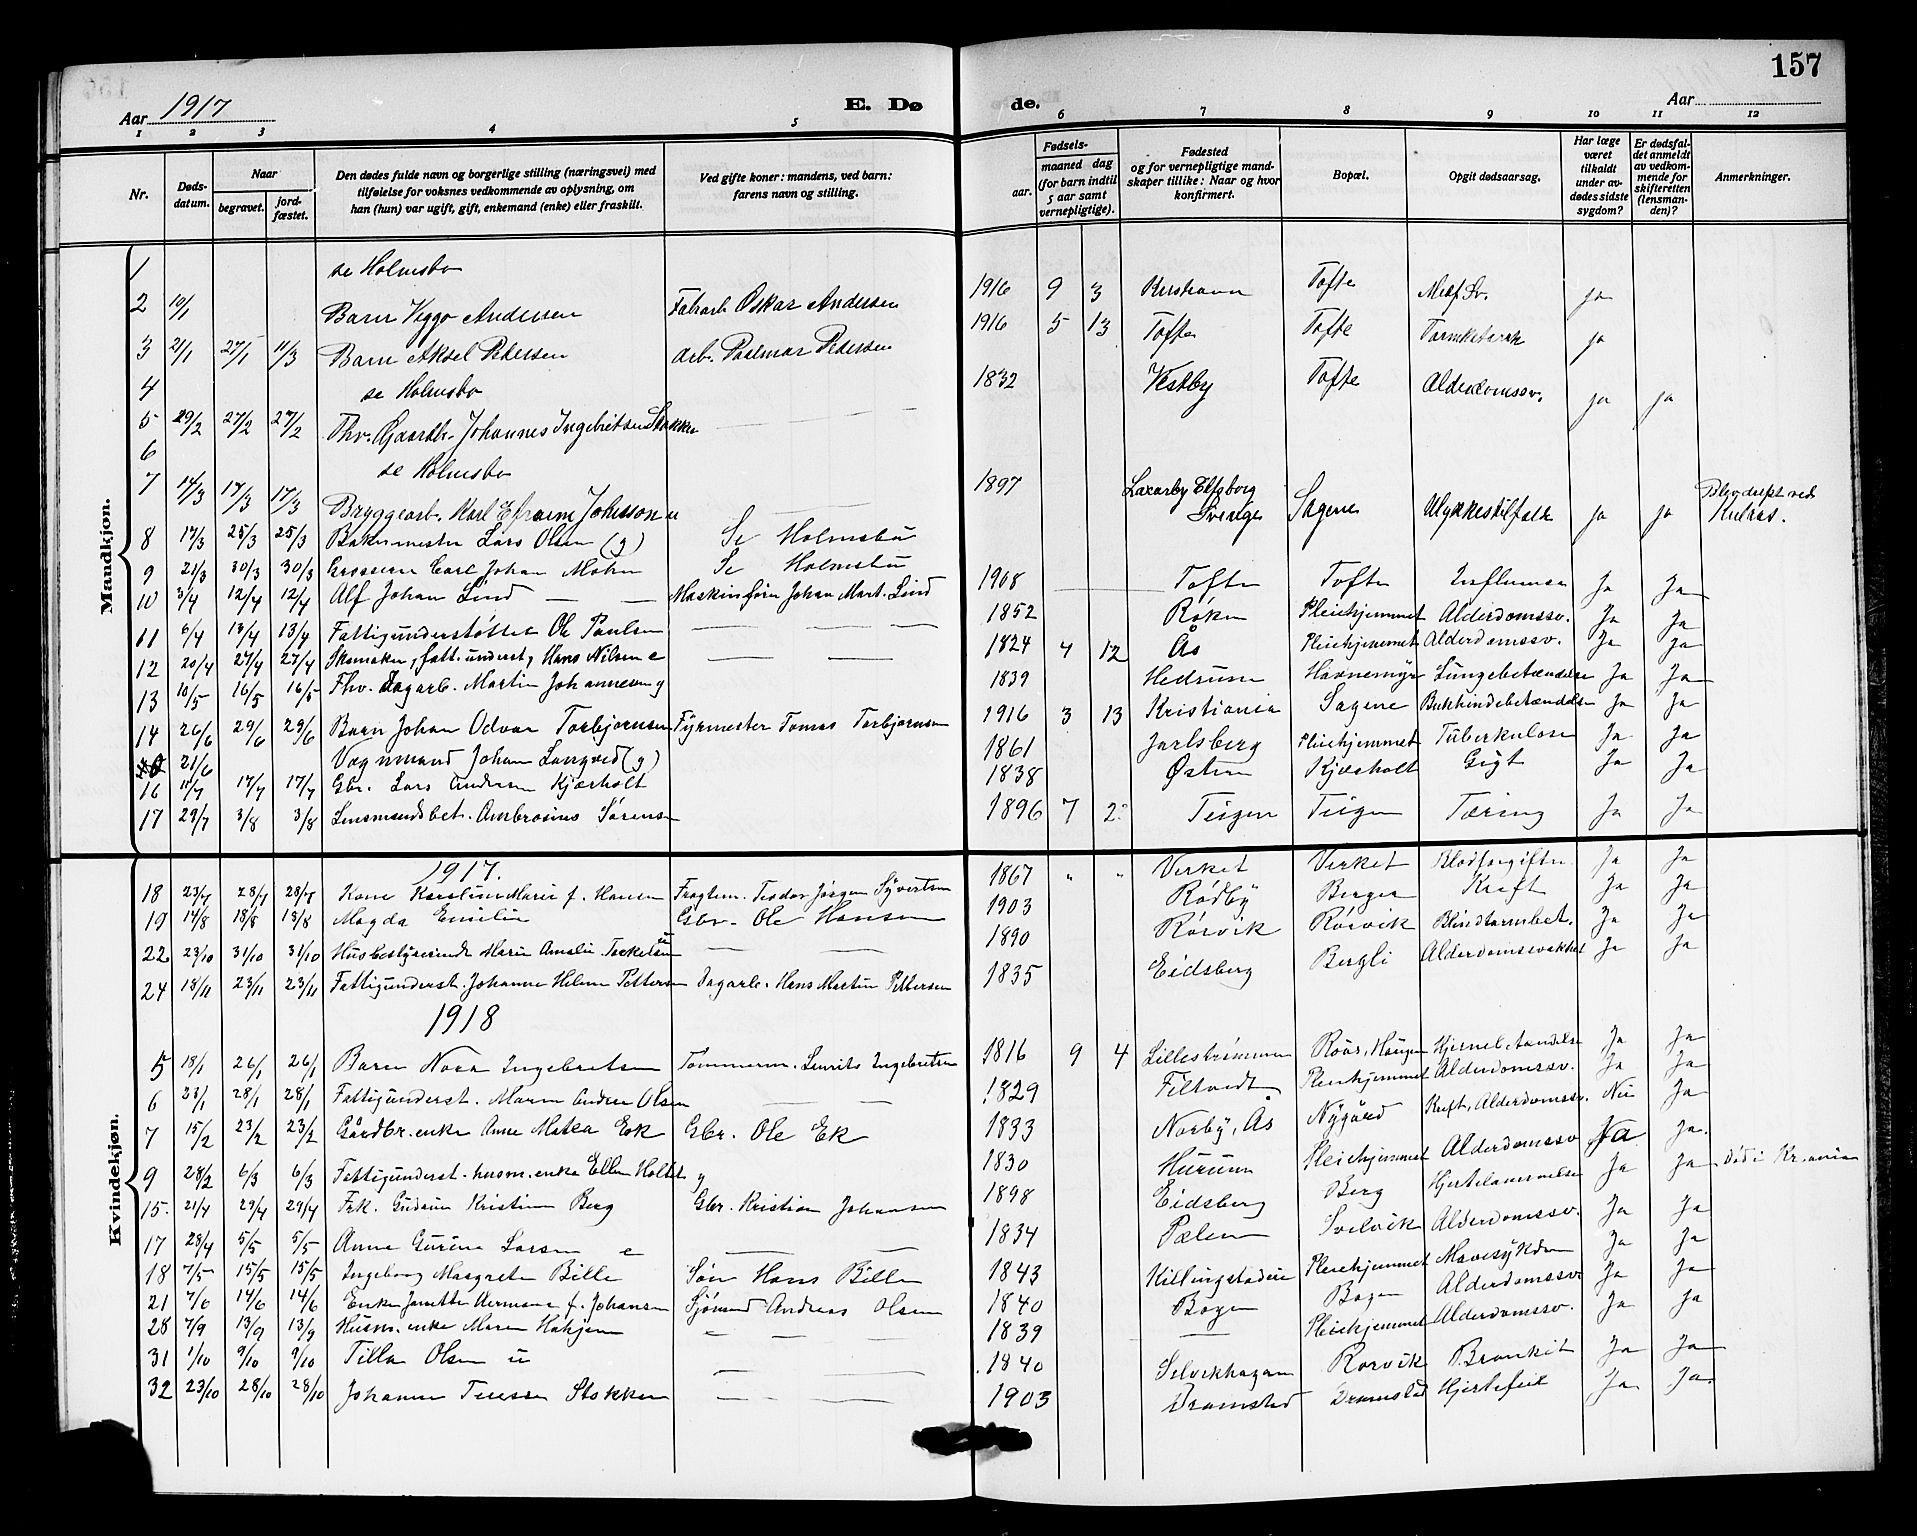 157
Aar 1917
E. Dø
de.
Aar
1 2 3 4 5 6 7 8 9 10 11 12
Nr.
Døds-datum.
Naar
begravet.
jord-fæstet.
Den dødes fulde navn og borgerlige stilling (næringsvei) med
tilføielse for voksnes vedkommende av oplysning, om
han (hun) var ugift, gift, enkemand (enke) eller fraskilt.
Ved gifte koner: mandens, ved barn:
farens navn og stilling.
Fødsels-
aar.
maaned dag
(for barn indtil
5 aar samt
vernepligtige).
Fødested
og for vernepligtige mand-
skaper tillike: Naar og hvor
konfirmert.
Bopæl.
Opgit dødsaarsag.
Har læge
været
tilkaldt
under av-
dødes sidste
sygdom?
Er dødsfal-
det anmeldt
av vedkom-
mende for
skifteretten
(lensman-
den)?
Anmerkninger.
Mandkjøn.
1 se Holmsbo
2 10/1 Barn Viggo Andersen Fabarb Oskar Andersen 1916 9 3 Tofte Medf. Sv. ja
3 21/1 27/1 11/3 Barn Aksel Pedersen arb. Pedersen 1916 5 13 Tofte Tofte ja
4 se Holmsbo
5 29/2 27/2 27/2 Fhv. Gaardbr. Johannes Ingebritsen Stokken 1832 Vestby Tofte Alderdomssv. ja ja
6 se Holmsbo
7 14/3 17/3 17/3 Bryggearb. Karl Efraim Johnsson u 1897 Laxarby Elfsborg Sverige Sagene Ulykkestilfælde ja ja Blev dræpt ved Kulras.
8 17/3 25/3 25/3 Bakermester Lars Olsen (g) Se Holmsbu
9 21/3 30/3 30/3 Grosserer Carl Johan Mohn Se Holmsbu
10 3/4 12/4 12/4 Alf Johan Lind Maskinfører Johan Mart. Lind 1908 Tofte Tofte Influensa Ja Ja
11 6/4 13/4 13/4 Fattigunderstøttet Ole Paulsen 1852 Røken Pleiehjemmet Alderdomssv. Ja Ja
12 20/4 27/4 27/4 Skomaker, fatt.underst, Hans Nilsen e 1824 4 12 Ås Pleiehjemmet Alderdomssv. Ja Ja
13 10/5 16/5 16/5 Fhv. Dagarb. Martin Johannesen g 1839 Hedrum Havnemyr Lungebetændelse Ja Ja
14 26/6 29/6 29/6 Barn Johan Odvar Torbjørnsen Fyrmester Tomas Torbjørnsen 1916 3 13 Kristiania Sagene Bukhindebetændelse Ja Ja
21/6 Vognmand Johan Langved (g) 1861 Jarlsberg Pleiehjemmet Tuberkulose Ja Ja
16 11/7 17/7 17/7 Gbr. Lars Andersen Kjærholt 1838 Østen Kjærholt Gigt Ja Ja
17 29/7 3/8 3/8 Lensmandsbet. Ambrosius Sørensen 1896 7 2 Teigen Teigen Tæring Ja Ja
Kvindekjøn.
1917.
18 23/7 28/7 28/7 Kone Karoline Marie f. Hansen Fragtem. Teodor Jørgen Syvertsen 1867 " " Verket Verket Blodforgiftn. Ja Ja
19 14/8 18/8 18/8 Magda Emilie Gbr. Ole Hansen 1903 Rødby Berger Kreft Ja Ja
22 23/10 31/10 31/10 Husbestyrerinde Marie Amalie Torkelsen u 1890 Rørvik Rørvik Blindtarmbet. Ja Ja
24 18/11 23/11 23/11 Fattigunderst. Johanne Helene Pettersen Dagarb. Hans Martin Pettersen 1835 Eidsberg Bergli Alderdomssvakhet Ja Ja
1918
5 18/1 26/1 26/1 Barn Nora Ingebretsen Tømmerm. Lauritz Ingebretsen 1816 9 4 Lillestrømmen Haugen Ja Ja
6 23/1 28/1 28/1 Fattigunderst. Maren Andrea Olsen 1829 Filtvedt Pleiehjemmet Alderdomssv. Ja Ja
7 15/2 23/2 23/2 Gårdbr.enke Anne Matea Ek Gbr. Ole Ek 1833 Nordby, Ås Nygård Kreft, Alderdomssv. Nei Ja
9 28/2 6/3 6/3 Fattigunderst. husm.enke Ellen Holtet g 1830 Hurum Pleiehjemmet Alderdomssv Ja Ja.
15. 21/4 29/4 29/4 Frk. Gudrun Kristine Berg Gbr. Kristian Johansen 1898 Eidsberg Berg Hjertelammelse Ja Ja Død i Kr.ania
17 28/4 5/5 5/5 Anne Gurine Larsen e 1834 Pælen Svelvik Alderdomssv. Ja Ja
18 7/5 15/5 15/5 Ingeborg Margrete Bille Søn Hans Bille 1843 Killingstadeie Pleiehjemmet Mavesykdom Ja Ja
21 7/6 14/6 14/6 Enke Janette Hermane f. Johansen Sjømand Andreas Olsen 1840 Bogen Bogen Alderdomssv Ja Ja
28 7/9 13/9 13/9 Husm.enke Maren Hakjern 1839 Pleiehjemmet Alderdomssv. Ja Ja
31 1/10 9/10 9/10 Tilla Olsen u 1840 Selvikhagan Rørvik Bronkit Ja Ja
32 23/10 28/10 28/10 Johanne Terese Stokken 1903 Dramstad Dramstad Hjertefeil Ja Ja.